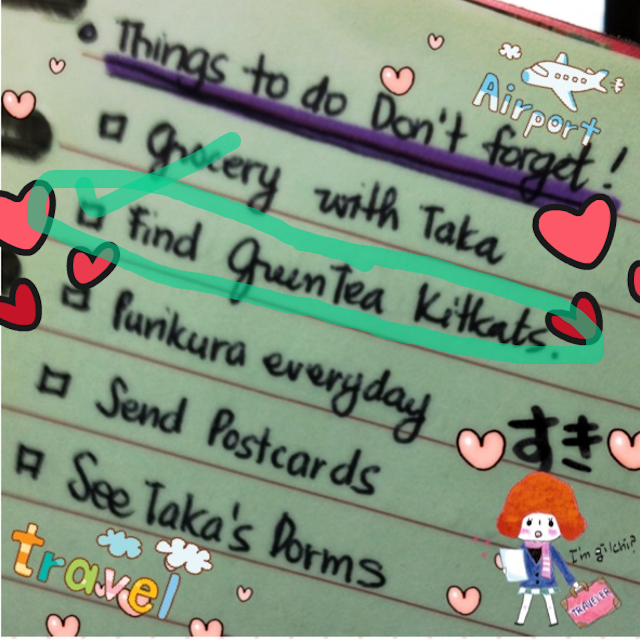 • Things to do Don't forget!
Airport
Grocery with Taka
Find Green Tea Kitkats.
Purikura everyday
Send Postcards
すき
See Taka's Dorms
I'm gilchi?
travel
TRAVELER